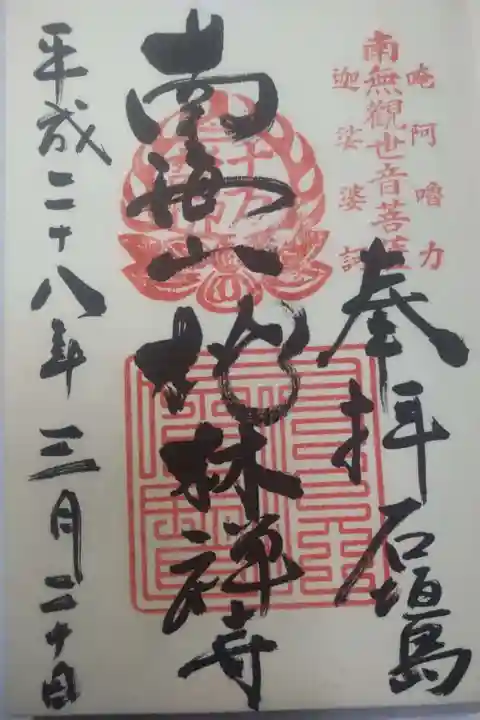 南無觀世音菩薩
唵阿嚕力
迦娑婆訶
奉拝 石垣島
南海山 桃林禅寺
平成二十八年 三月 二十日